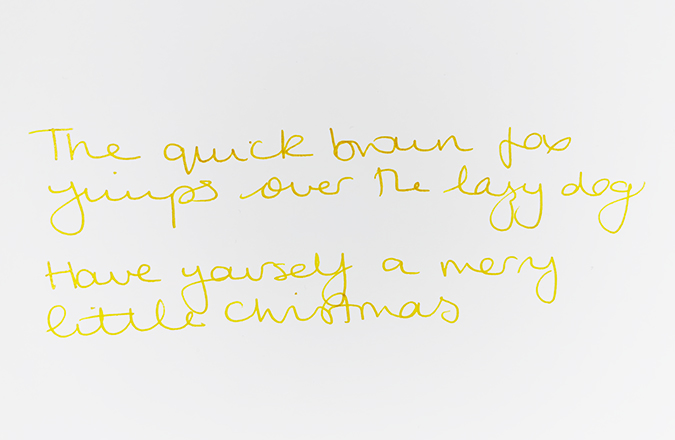 The quick brown fox
jumps over the lazy dog
Have yourself a merry
little christmas